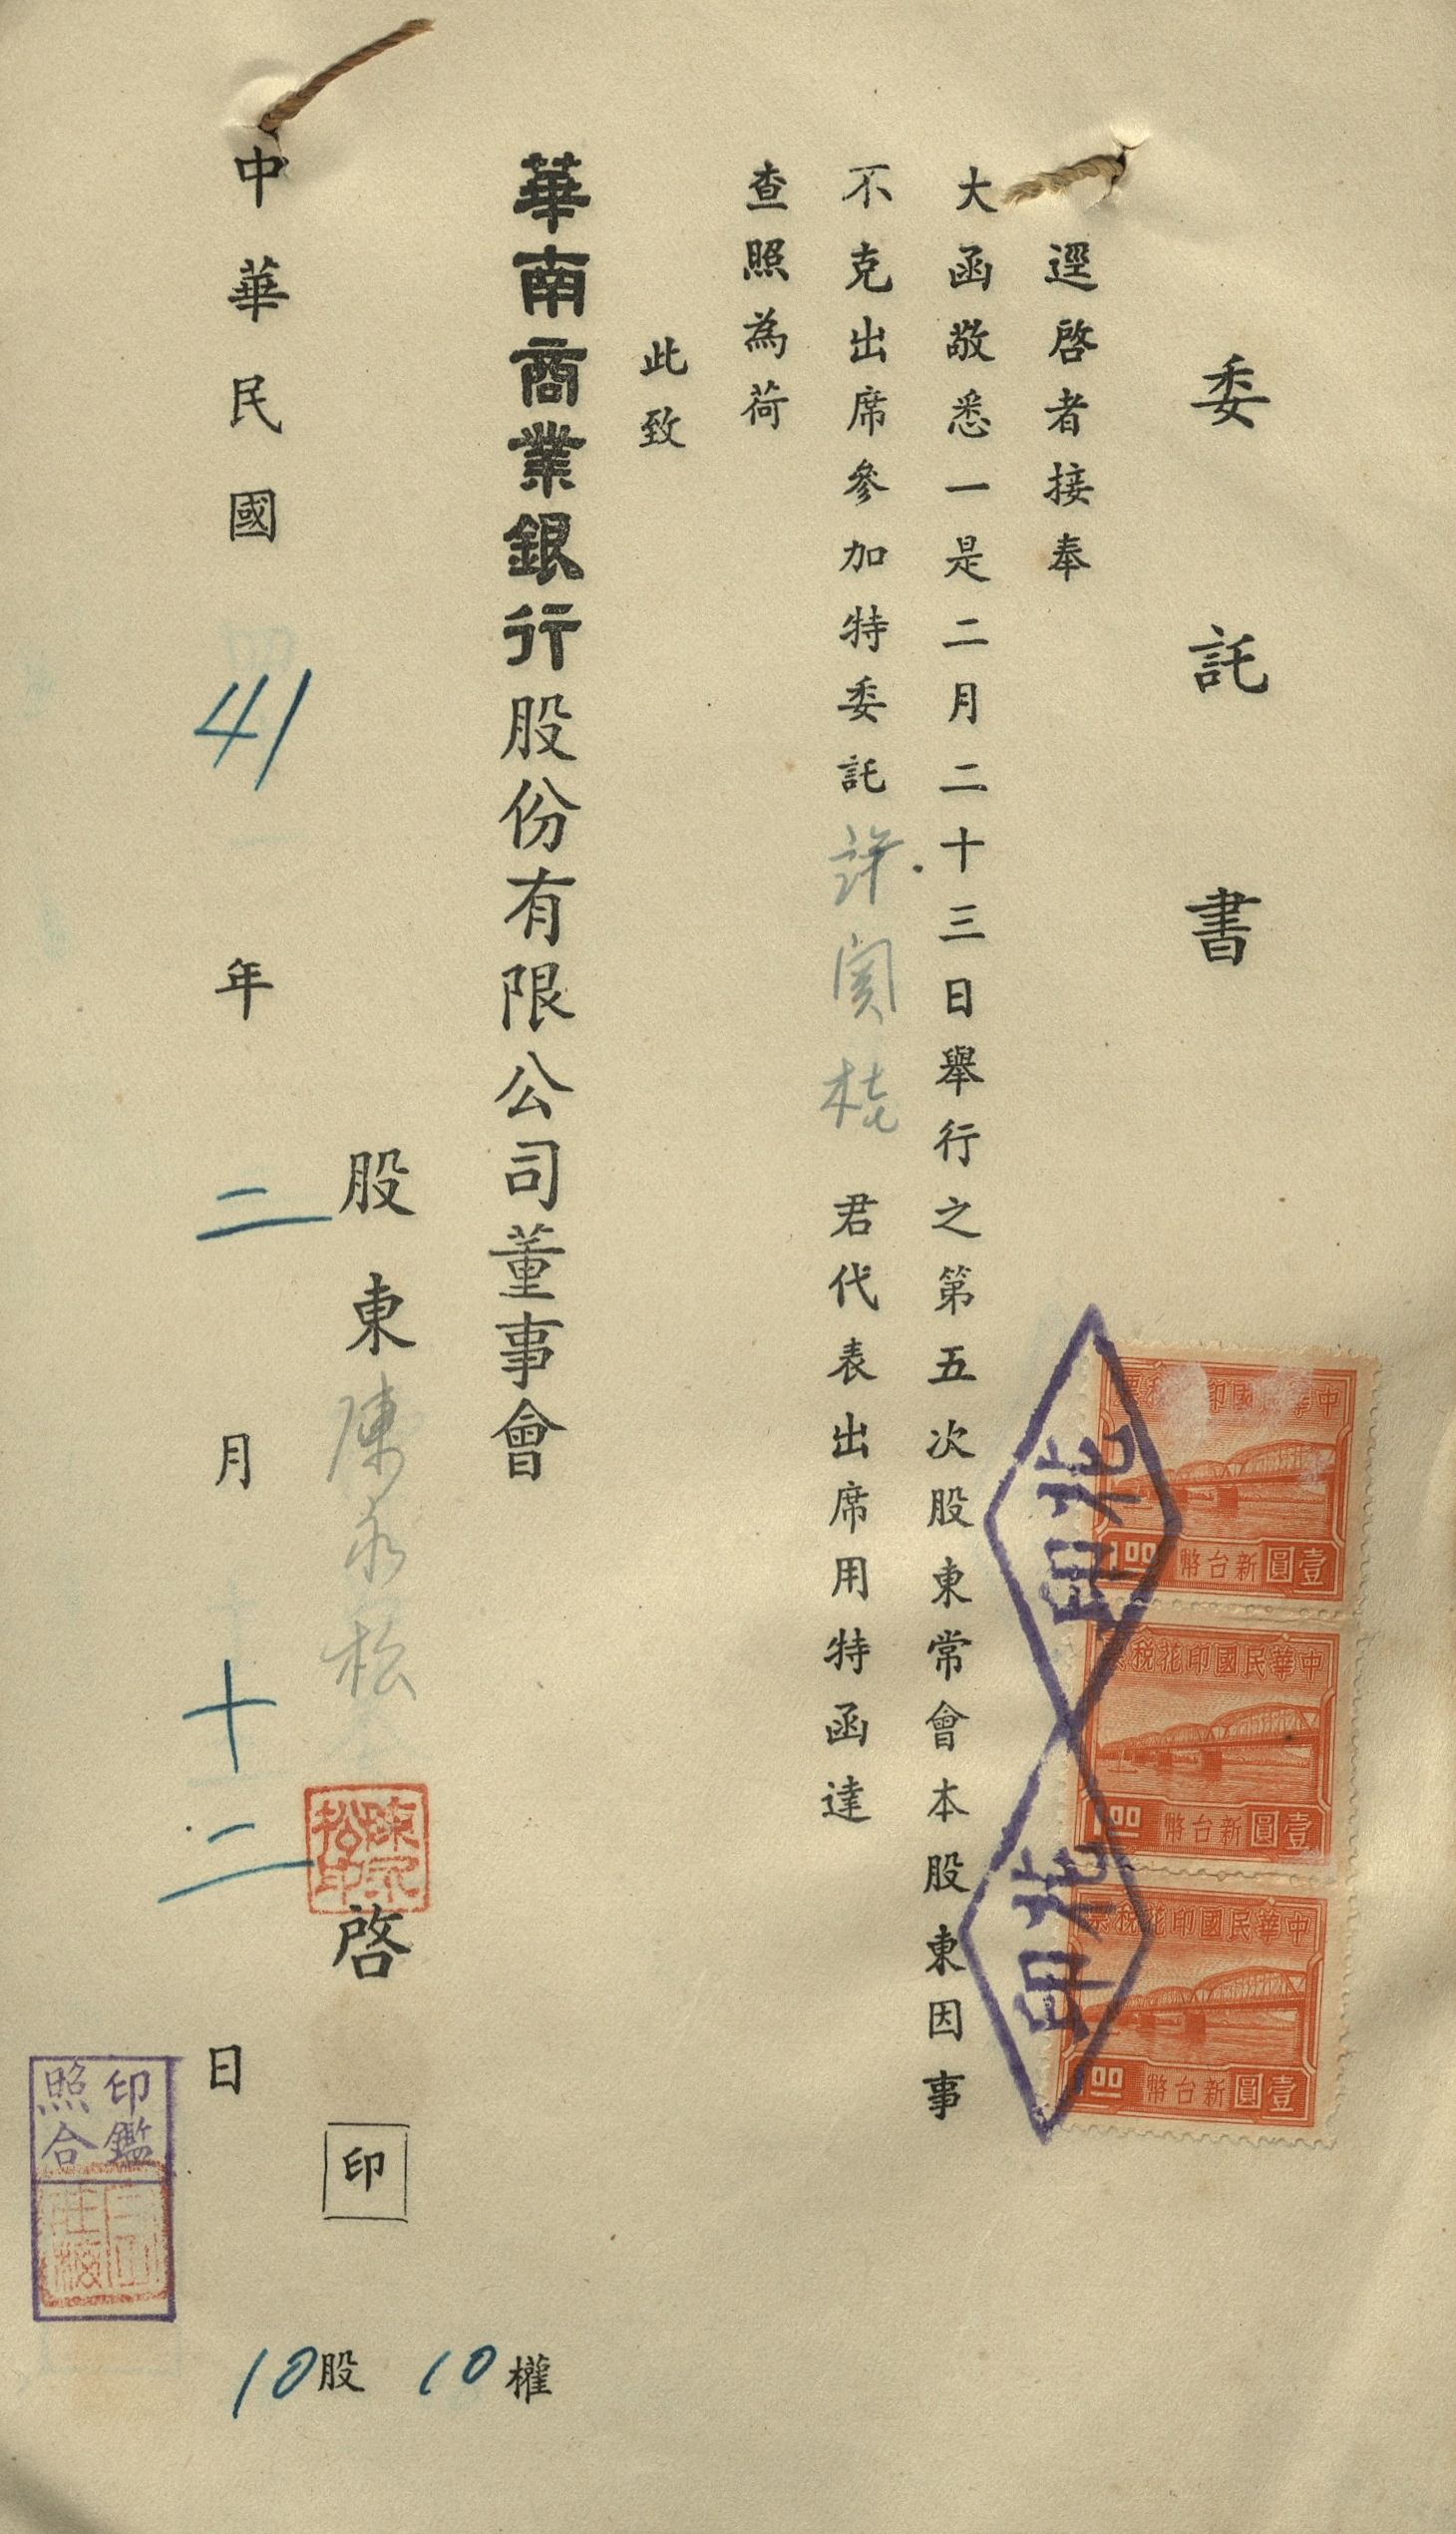 委託書
逕啓者接奉
大函敬悉一是二月二十三日舉行之第五次股東常會本股東因事
不克出席參加特委託許 君代表出席用特函達
查照為荷
此致
華南商業銀行股份有限公司董事會
股東陳永松啓 印
中華民國41年二月十二日
10股 10權
陳永松印
印鑑
照合
中華民國印花稅票
壹圓新台幣 1.00
中華民國印花稅票
壹圓新台幣 1.00
中華民國印花稅票
壹圓新台幣 1.00
印花
印花